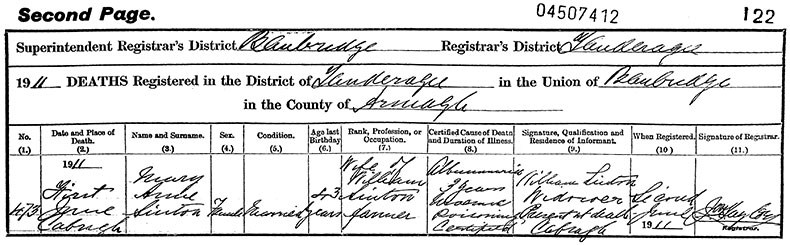 Second Page.
04507412
122
Superintendent Registrar's District Banbridge Registrar's District Tanderagee
1911 DEATHS Registered in the District of Tanderagee in the Union of Banbridge
in the County of Armagh
No. (1.)
Date and Place of Death. (2.)
Name and Surname. (3.)
Sex. (4.)
Condition. (5.)
Age last Birthday (6.)
Rank, Profession, or Occupation. (7.)
Certified Cause of Death and Duration of Illness. (8.)
Signature, Qualification and Residence of Informant. (9.)
When Registered. (10)
Signature of Registrar. (11.)
473
1911
First
June
Cabragh
Mary
Anne
Sinton
Female
Married
43
years
Wife of
William
Sinton
farmer
Albuminaria
3 years
Uraemic
Poisoning
Certified
William Sinton
Widower
Present at death
Cabragh
Second
June
1911
Registrar.